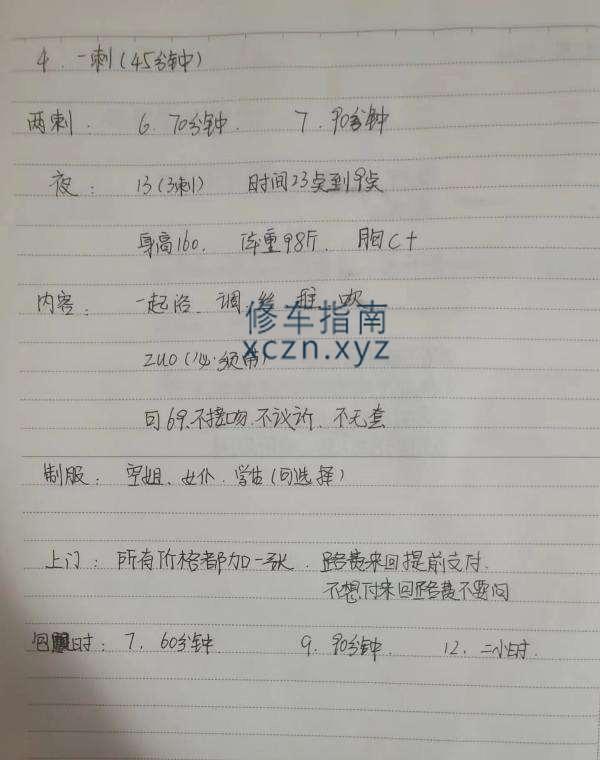 4. 一刺(45分钟)
两刺. 6. 70分钟. 7. 90分钟
夜: 13(3刺) 时间23点到9点
身高160. 体重98斤. 胸C+
内容: 一起浴. 调 吹
修车指南
xczn.xyz
zuo(必须带)
可69.不接吻.不议价.不无套
制服: 空姐、女仆.学生(可选择)
上门: 所有价格都加一张. 路费来回提前支付.
不想付来回路费不要问
包时: 7. 60分钟. 9. 90分钟. 12. 二小时.